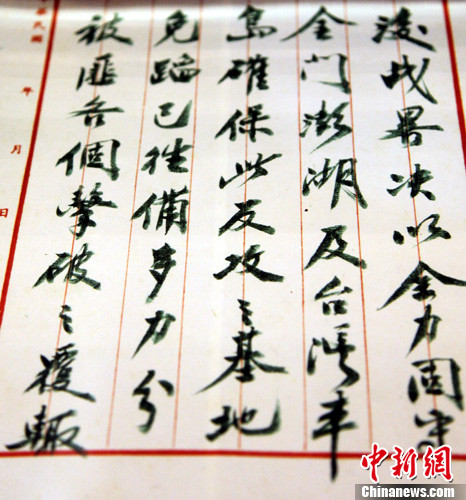 後战畧决以全力固守
金门澎湖及台湾本
島確保此反攻之基地
免蹈已往備多力分
被匪各個擊破之覆轍
民國 年 月 日
中新网
Chinanews.com